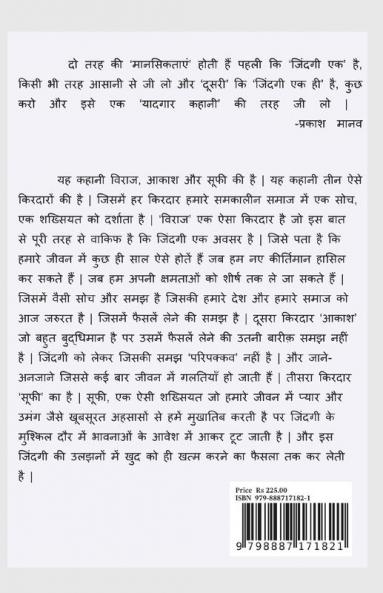 दो तरह की ‘मानसिकताएं’ होती हैं पहली कि ‘जिंदगी एक’ है,
किसी भी तरह आसानी से जी लो और ‘दूसरी’ कि ‘जिंदगी एक ही’ है, कुछ
करो और इसे एक ‘यादगार कहानी’ की तरह जी लो |
-प्रकाश मानव
यह कहानी विराज, आकाश और सूफी की है | यह कहानी तीन ऐसे
किरदारों की है | जिसमें हर किरदार हमारे समकालीन समाज में एक सोच,
एक शख्सियत को दर्शाता है | ‘विराज’ एक ऐसा किरदार है जो इस बात
से पूरी तरह से वाकिफ है कि जिंदगी एक अवसर है | जिसे पता है कि
हमारे जीवन में कुछ ही साल ऐसे होतें हैं जब हम नए कीर्तिमान हासिल
कर सकते हैं | जब हम अपनी क्षमताओं को शीर्ष तक ले जा सकते हैं |
जिसमें वैसी सोच और समझ है जिसकी हमारे देश और हमारे समाज को
आज जरुरत है | जिसमें फैसलें लेने की समझ है | दूसरा किरदार ‘आकाश’
जो बहुत बुद्धिमान है पर उसमें फैसलें लेने की उतनी बारीक़ समझ नहीं
है | जिंदगी को लेकर जिसकी समझ ‘परिपक्कव’ नहीं है | और जाने-
अनजाने जिससे कई बार जीवन में गलतियाँ हो जाती हैं | तीसरा किरदार
‘सूफी’ का है | सूफी, एक ऐसी शख्सियत जो हमारे जीवन में प्यार और
उमंग जैसे खूबसूरत अहसासों से हमें मुखातिब करती है पर जिंदगी के
मुश्किल दौर में भावनाओं के आवेश में आकर टूट जाती है | और इस
जिंदगी की उलझनों में खुद को ही खत्म करने का फैसला तक कर लेती
है |
Price Rs 225.00
ISBN 979-888717182-1
9 798887 171821